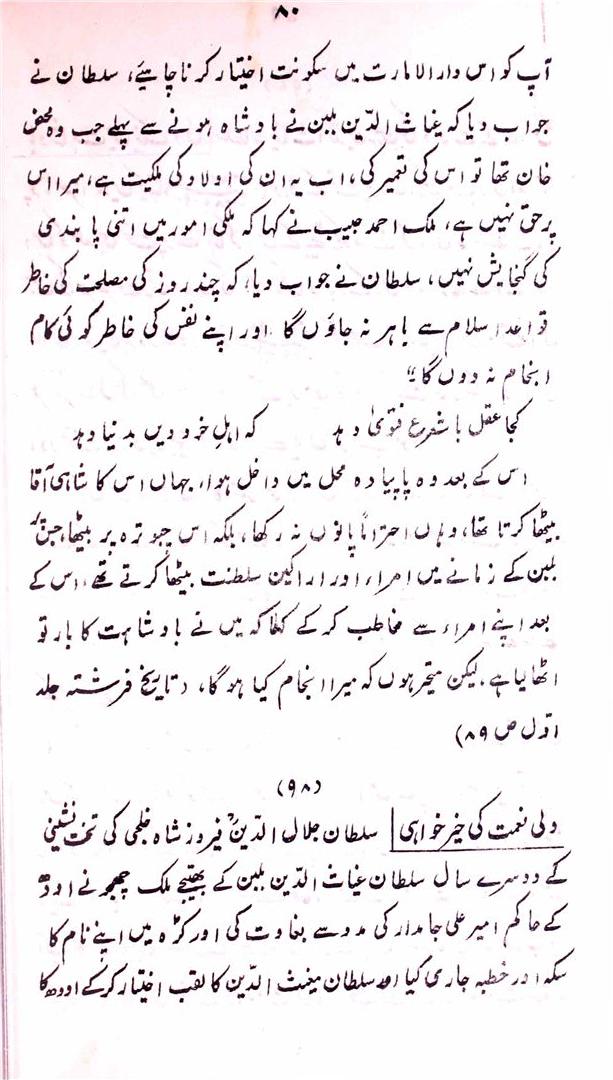 ۸۰
آپ کو اس دارالامارت میں سکونت اختیار کرنا چاہیئے، سلطان نے
جواب دیا کہ غیاث الدّین بلبن نے بادشاہ ہونے سے پہلے جب وہ محض
خان تھا تو اس کی تعمیر کی، اب یہ ان کی اولاد کی ملکیت ہے، میرا اس
پر حق نہیں ہے، ملک احمد حبیب نے کہا کہ ملکی امور میں اتنی پابندی
کی گنجایش نہیں، سلطان نے جواب دیا، کہ چند روز کی مصلحت کی خاطر
قواعد اسلام سے باہر نہ جاؤں گا اور اپنے نفس کی خاطر کوئی کام
انجام نہ دوں گا؛"
کجا عقل با شرع فتویٰ دہد کہ اہلِ خرد دیں بدنیا دہد
اس کے بعد وہ پاپیادہ محل میں داخل ہوا، جہاں اس کا شاہی آقا
بیٹھا کرتا تھا، وہاں احتراماً پانوں نہ رکھا، بلکہ اس چبوترہ پر بیٹھا، جس پر
بلبن کے زمانے میں امراء اور اراکین سلطنت بیٹھا کرتے تھے، اس کے
بعد اپنے امراء سے مخاطب کر کے کہا کہ میں نے بادشاہت کا بار تو
اٹھایا ہے، لیکن متحیر ہوں کہ میرا انجام کیا ہو گا، (تاریخ فرشتہ جلد
اوّل ص ۸۹)
(۹۸)
ولی نعمت کی خیر خواہی | سلطان جلال الدّین فیروز شاہ خلجی کی تخت نشینی
کے دوسرے سال سلطان غیاث الدّین بلبن کے بھتیجے ملک چھجو نے اودھ
کے حاکم امیر علی جامدار کی مدد سے بغاوت کی اور کڑہ میں اپنے نام کا
سکہ اور خطبہ جاری کیا اور سلطان مغیث الدّین کا لقب اختیار کر کے اودھ کا